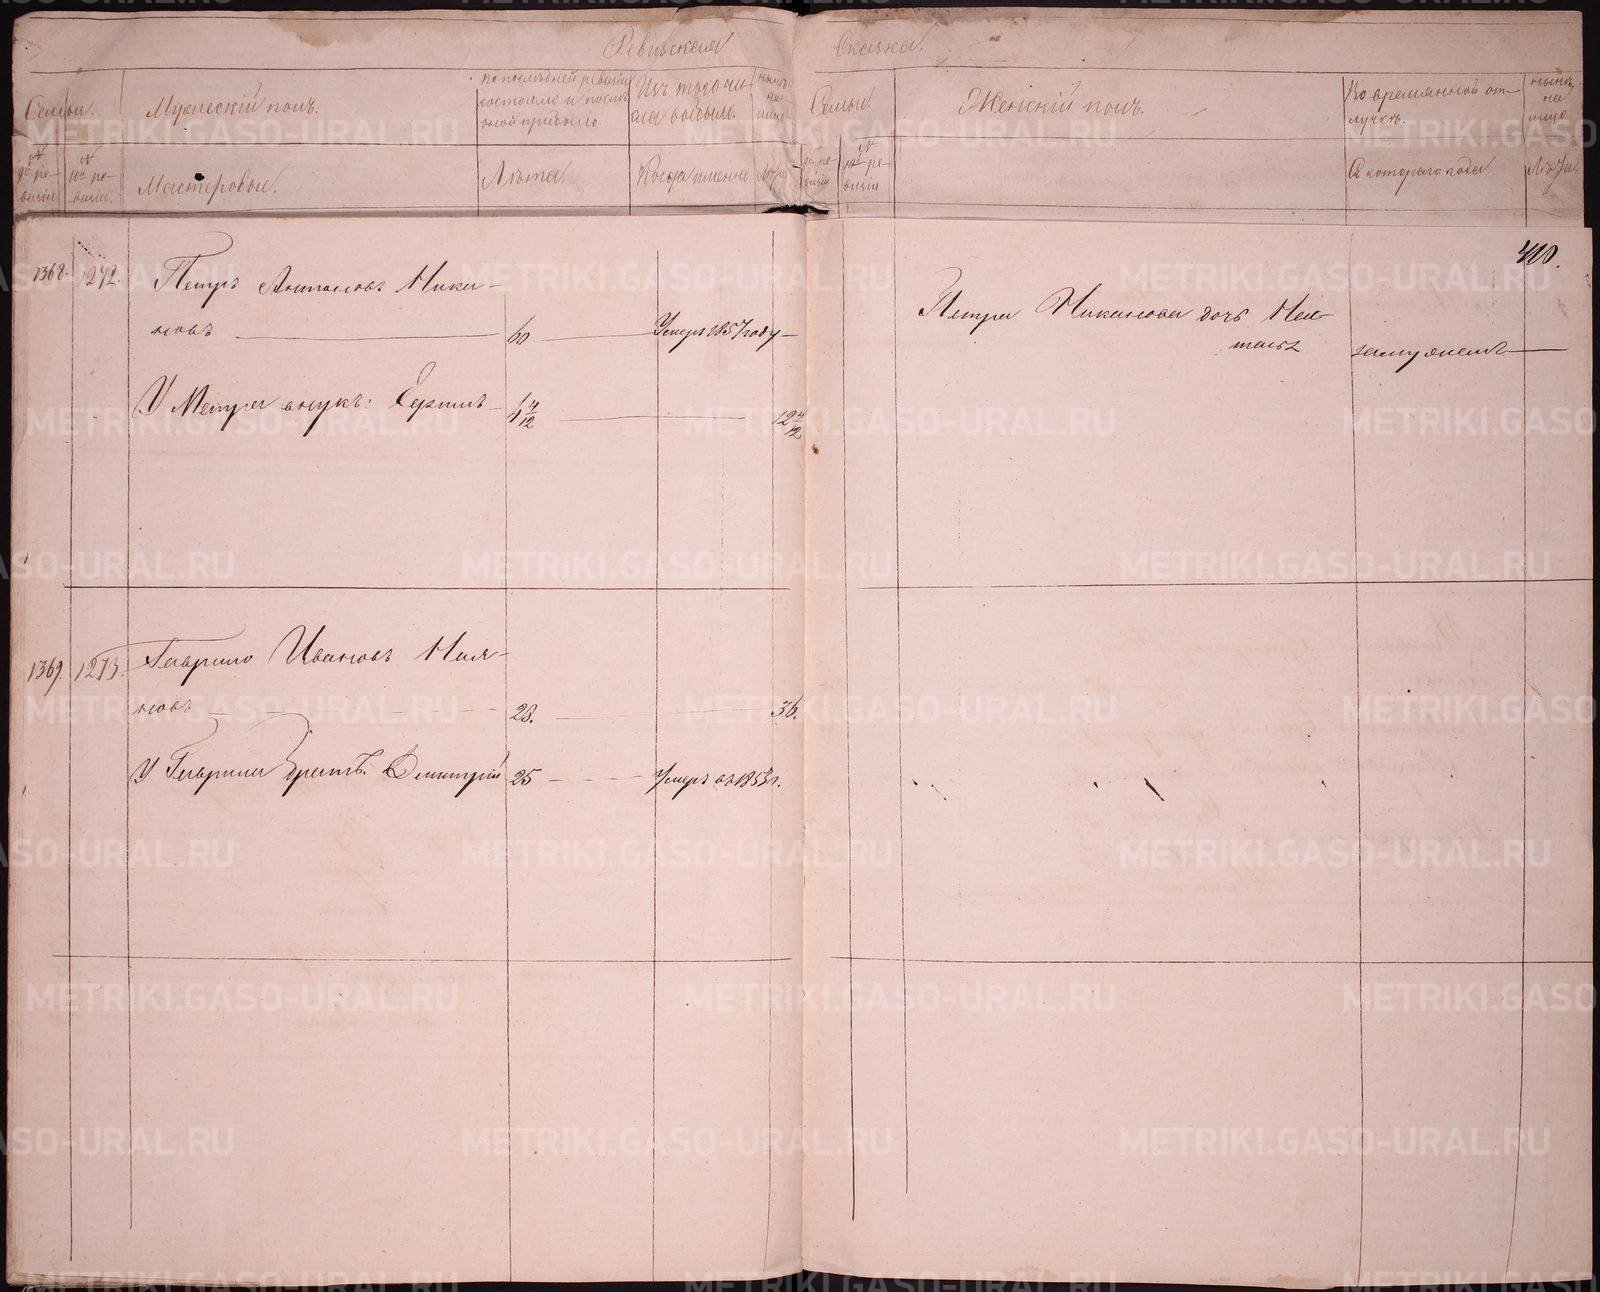 Ревизская Сказка.
Семьи. Мужескій полъ. По послѣдней ревизіи состояло и послѣ оной прибыло Изъ того числа выбыло. Нынѣ на лицо Семьи. Женскій полъ. Во временной отлучкѣ. Нынѣ на лицо
№ 9й ревизіи № 10й ревизіи. Мастеровые. Лѣта. Когда именно Лѣта № 9й ревизіи № 10й ревизіи Съ котораго года Лѣта.
410.
1368. 1272. Петръ Антоновъ Ника-
новъ 60 Умеръ 1857 году
У Петра внукъ: 4 4/12 12 4/12
Петра Никанова дочь На-
талья замужемъ
1369. 1273. Гаврило Ивановъ
новъ 28. 36.
У Гаврила братъ Дмитрій 25 Умеръ въ 1853 г.
METRIKI.GASO-URAL.RU